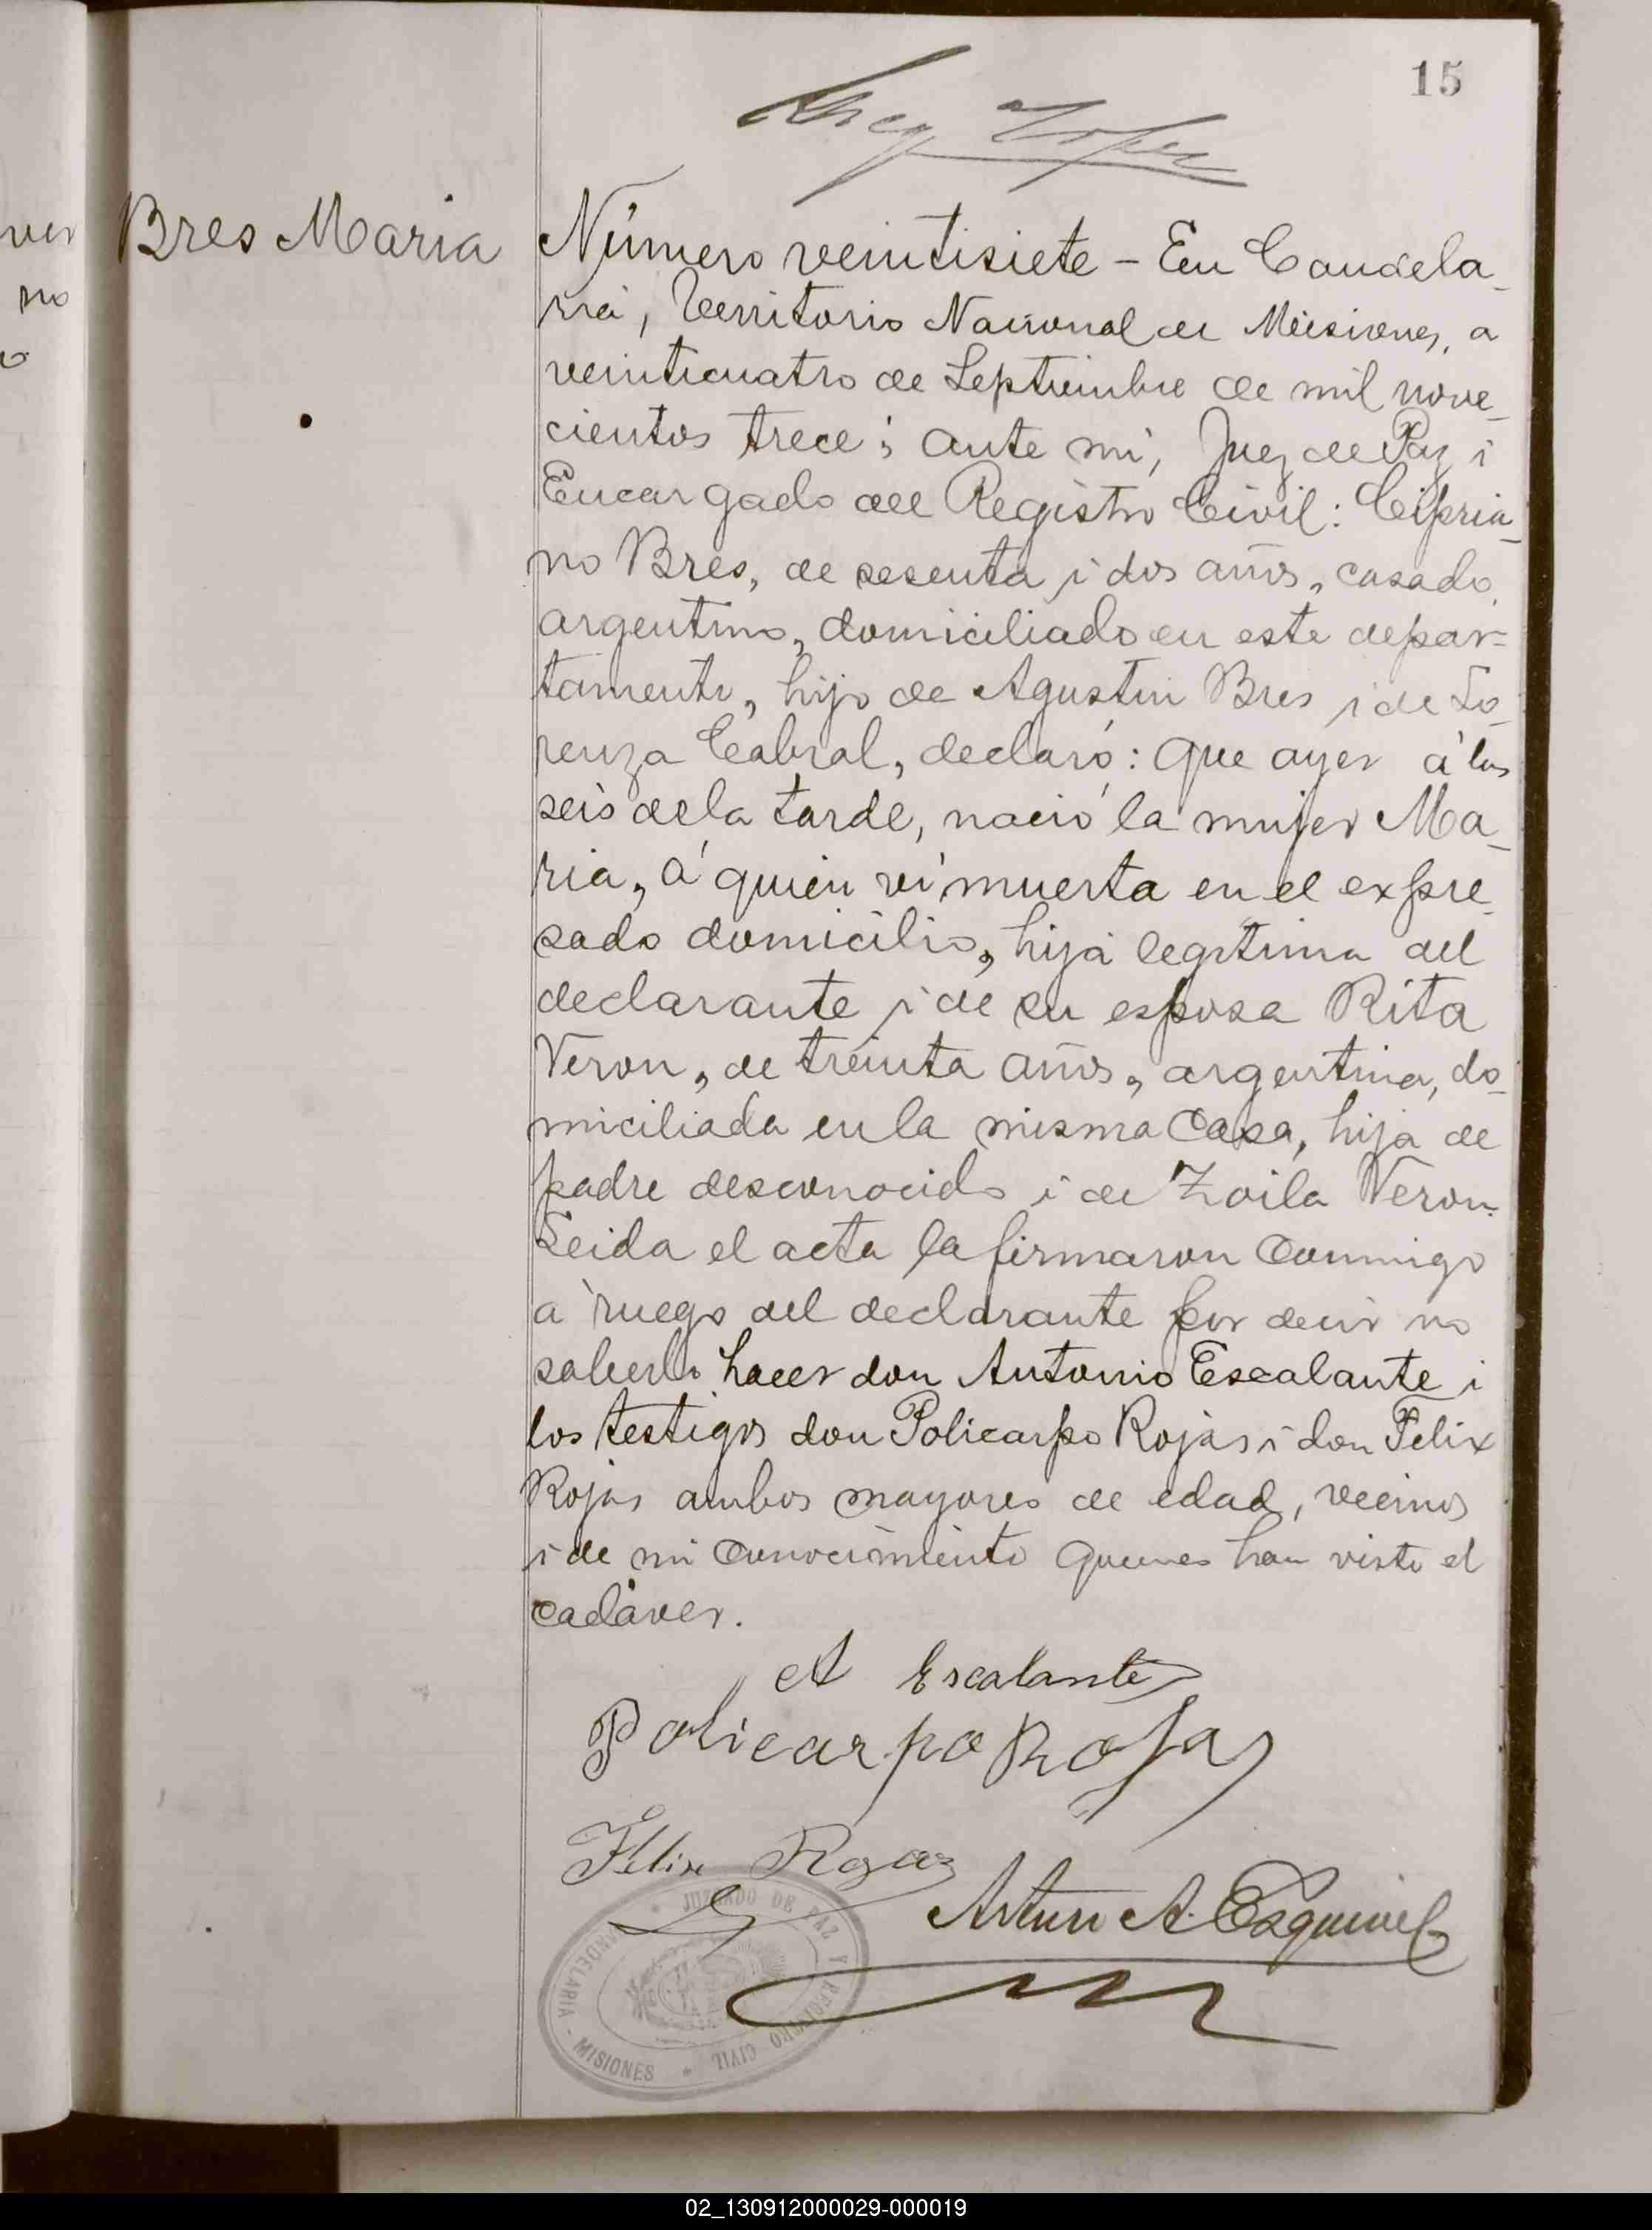 15
ver
no
Bres Maria
Número veintisiete - En Candela-
ria, Territorio Nacional de Misiones, a
veinticuatro de Septiembre de mil nove-
cientos trece; ante mi, Juez de Paz i
Encargado del Registro Civil: Cipria-
no Bres, de sesenta i dos años, casado,
argentino, domiciliado en este depar=
tamento, hijo de Agustin Bres i de Lo-
renza Cabral, declaró: que ayer á las
seis de la tarde, nació la mujer Ma-
ria, á quien ví muerta en el expre-
sado domicilio, hija legitima del
declarante i de su esposa Rita
Veron, de treinta años, argentina, do-
miciliada en la misma casa, hija de
padre desconocido i de Zoila Veron.
Leida el acta la firmaron conmigo
a ruego del declarante por decir no
saberlo hacer don Antonio Escalante i
los testigos don Policarpo Rojas i don Felix
Rojas ambos mayores de edad, vecinos
i de mi conocimiento quienes han visto el
cadáver.
A Escalante
Policarpo Rojas
Felix Rojas
Arturo A. Esquivel
JUZGADO DE PAZ Y REGISTRO CIVIL
CANDELARIA - MISIONES
02_130912000029-000019